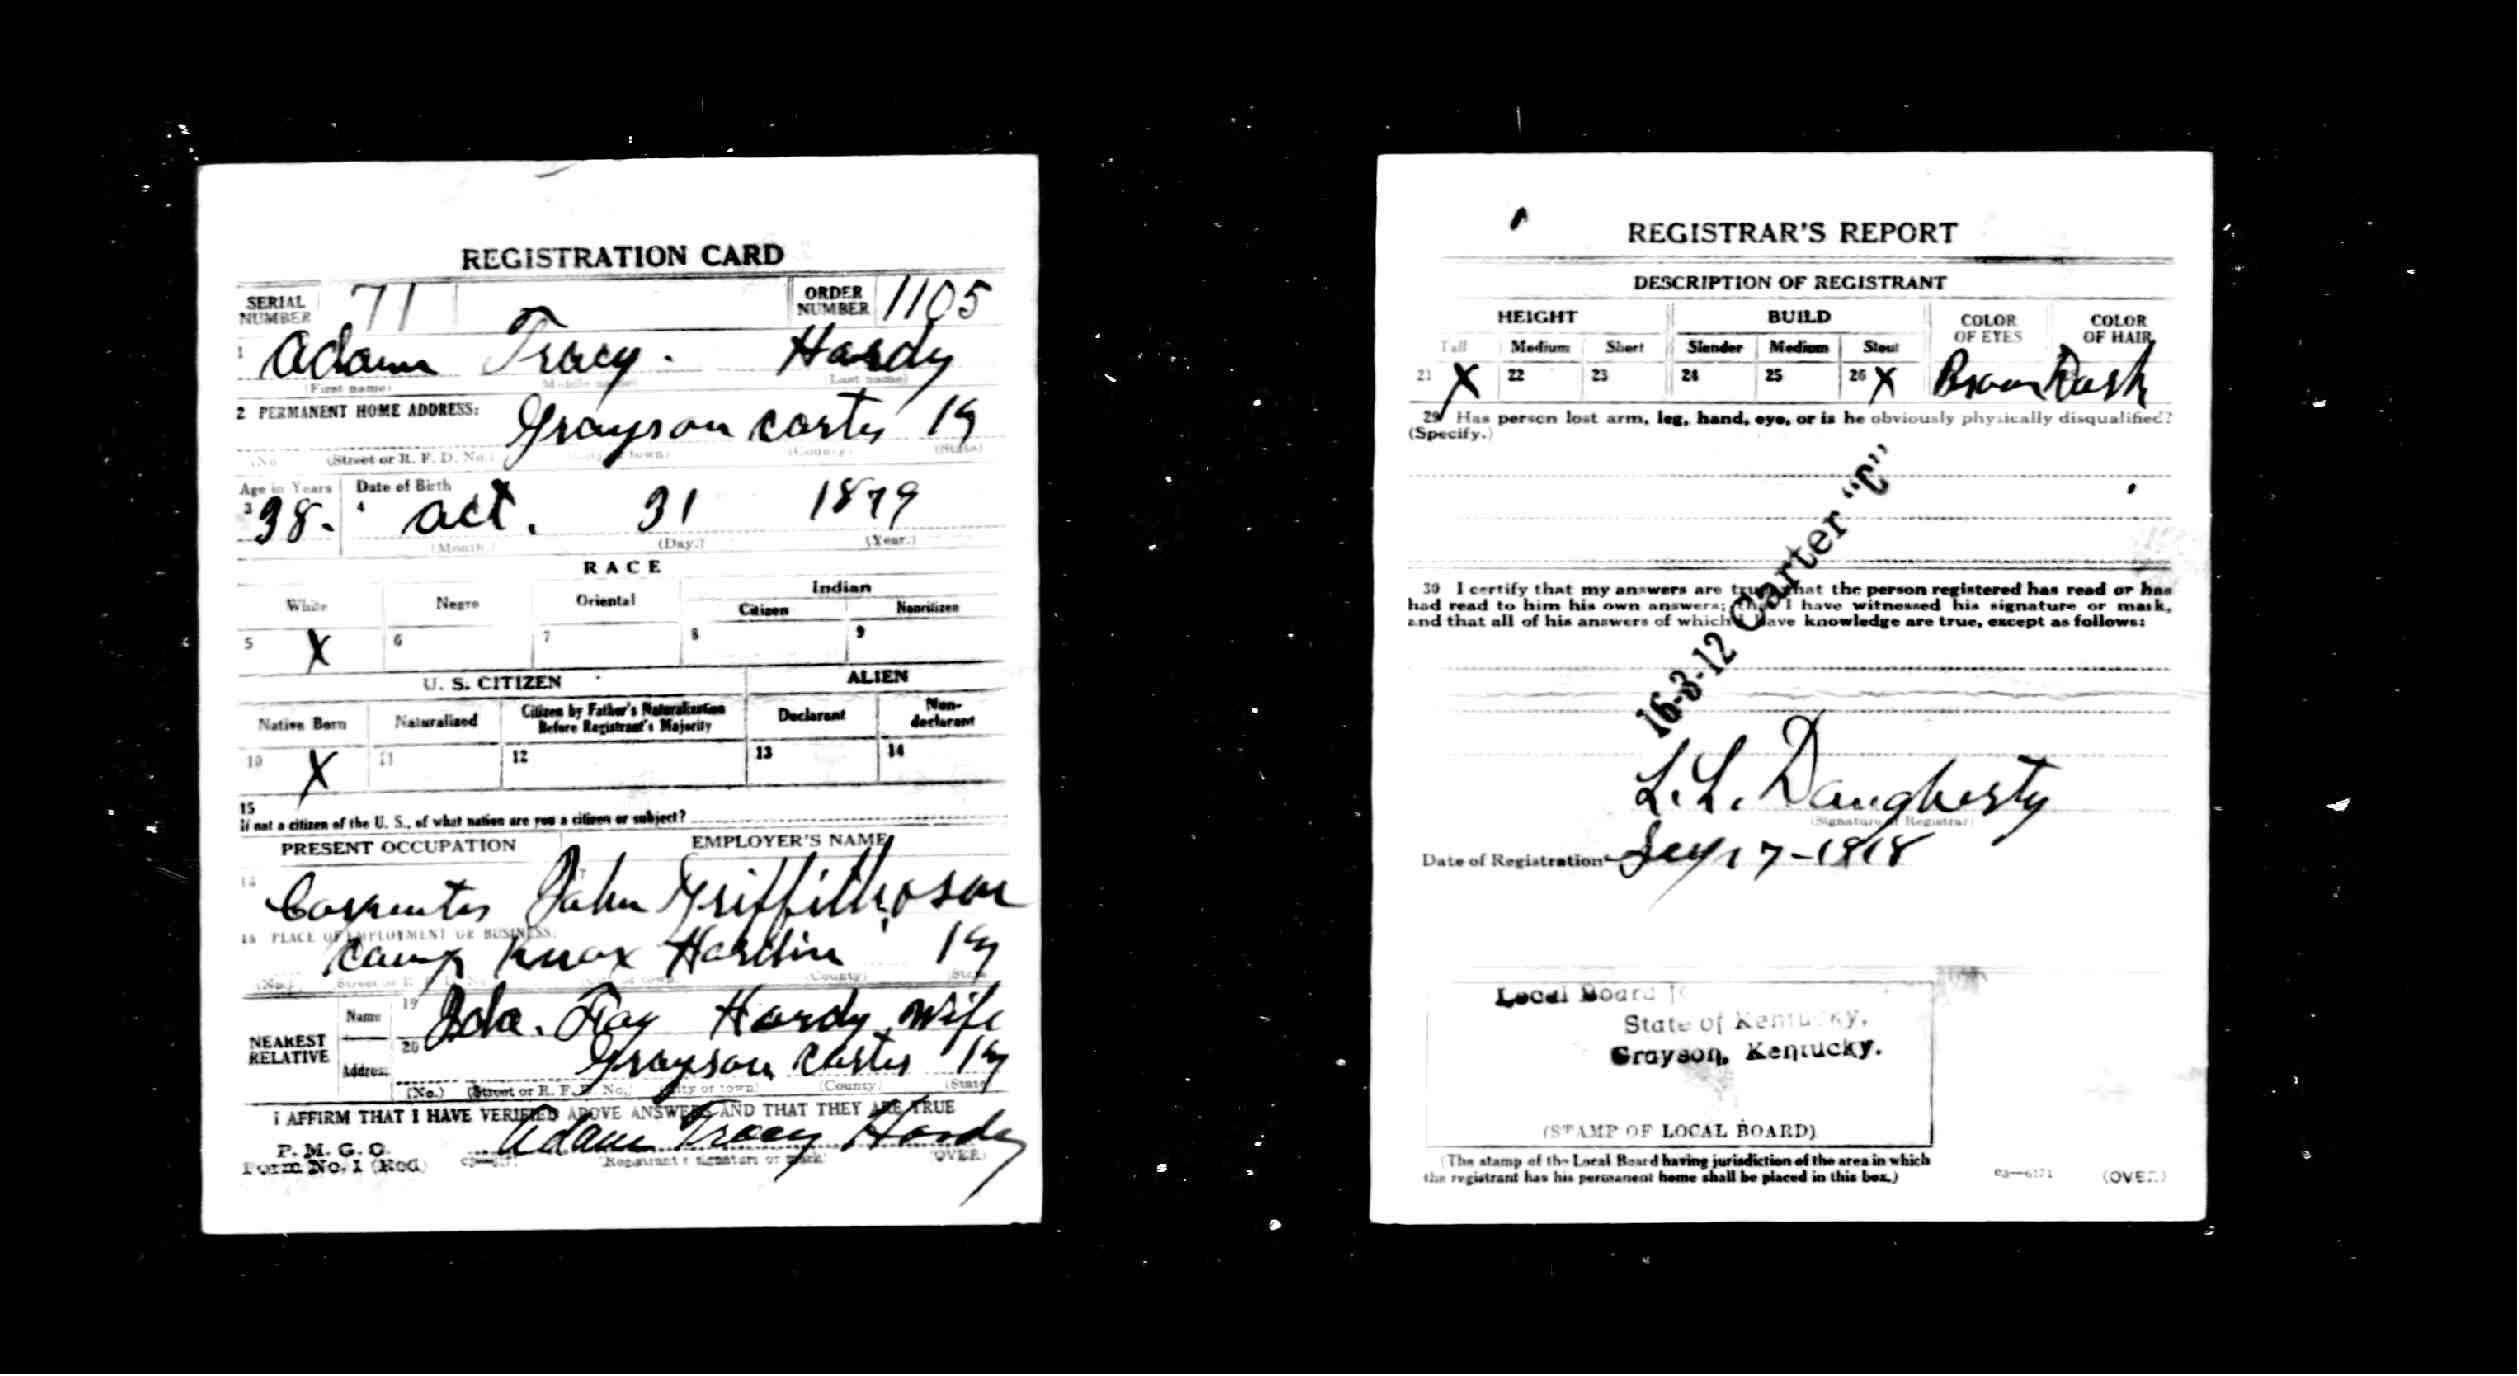 REGISTRATION CARD
SERIAL NUMBER 71 ORDER NUMBER 1105
1 Adam Tracy. Hardy
(First name) (Middle name) (Last name)
2 PERMANENT HOME ADDRESS:
Grayson Carter Ky
(No.) (Street or R. F. D. No.) (City or town) (County) (State)
Age in Years Date of Birth
3 38. 4 Oct. 31 1879
(Month.) (Day.) (Year.)
RACE
White Negro Oriental Indian
Citizen Noncitizen
5 X 6 7 8 9
U. S. CITIZEN ALIEN
Native Born Naturalized Citizen by Father's Naturalization Before Registrant's Majority Declarant Non-declarant
10 X 11 12 13 14
15
If not a citizen of the U. S., of what nation are you a citizen or subject?
PRESENT OCCUPATION EMPLOYER'S NAME
Carpenter John Griffith & son
PLACE OF EMPLOYMENT OR BUSINESS:
Camp Knox Hardin Ky
(No.) (Street or R. F. D. No.) (City or town) (County) (State)
NEAREST RELATIVE
Name 19 Ida. Fay Hardy, wife
Address 20 Grayson Carter Ky
(No.) (Street or R. F. D. No.) (City or town) (County) (State)
I AFFIRM THAT I HAVE VERIFIED ABOVE ANSWERS AND THAT THEY ARE TRUE
P. M. G. O.
Form No. 1 (Red) Adam Tracy Hardy
(Registrant's signature or mark) (OVER)
REGISTRAR'S REPORT
DESCRIPTION OF REGISTRANT
HEIGHT BUILD COLOR OF EYES COLOR OF HAIR
Tall Medium Short Slender Medium Stout
21 X 22 23 24 25 26 X Brown Dark
29 Has person lost arm, leg, hand, eye, or is he obviously physically disqualified?
(Specify.)
16-3-12 Carter "C"
30 I certify that my answers are true; that the person registered has read or has
had read to him his own answers; that I have witnessed his signature or mark,
and that all of his answers of which I have knowledge are true, except as follows:
L. L. Daugherty
(Signature of Registrar)
Date of Registration Sep 17-1918
Local Board
State of Kentucky,
Grayson, Kentucky.
(STAMP OF LOCAL BOARD)
(The stamp of the Local Board having jurisdiction of the area in which
the registrant has his permanent home shall be placed in this box.)
03—6171 (OVER)